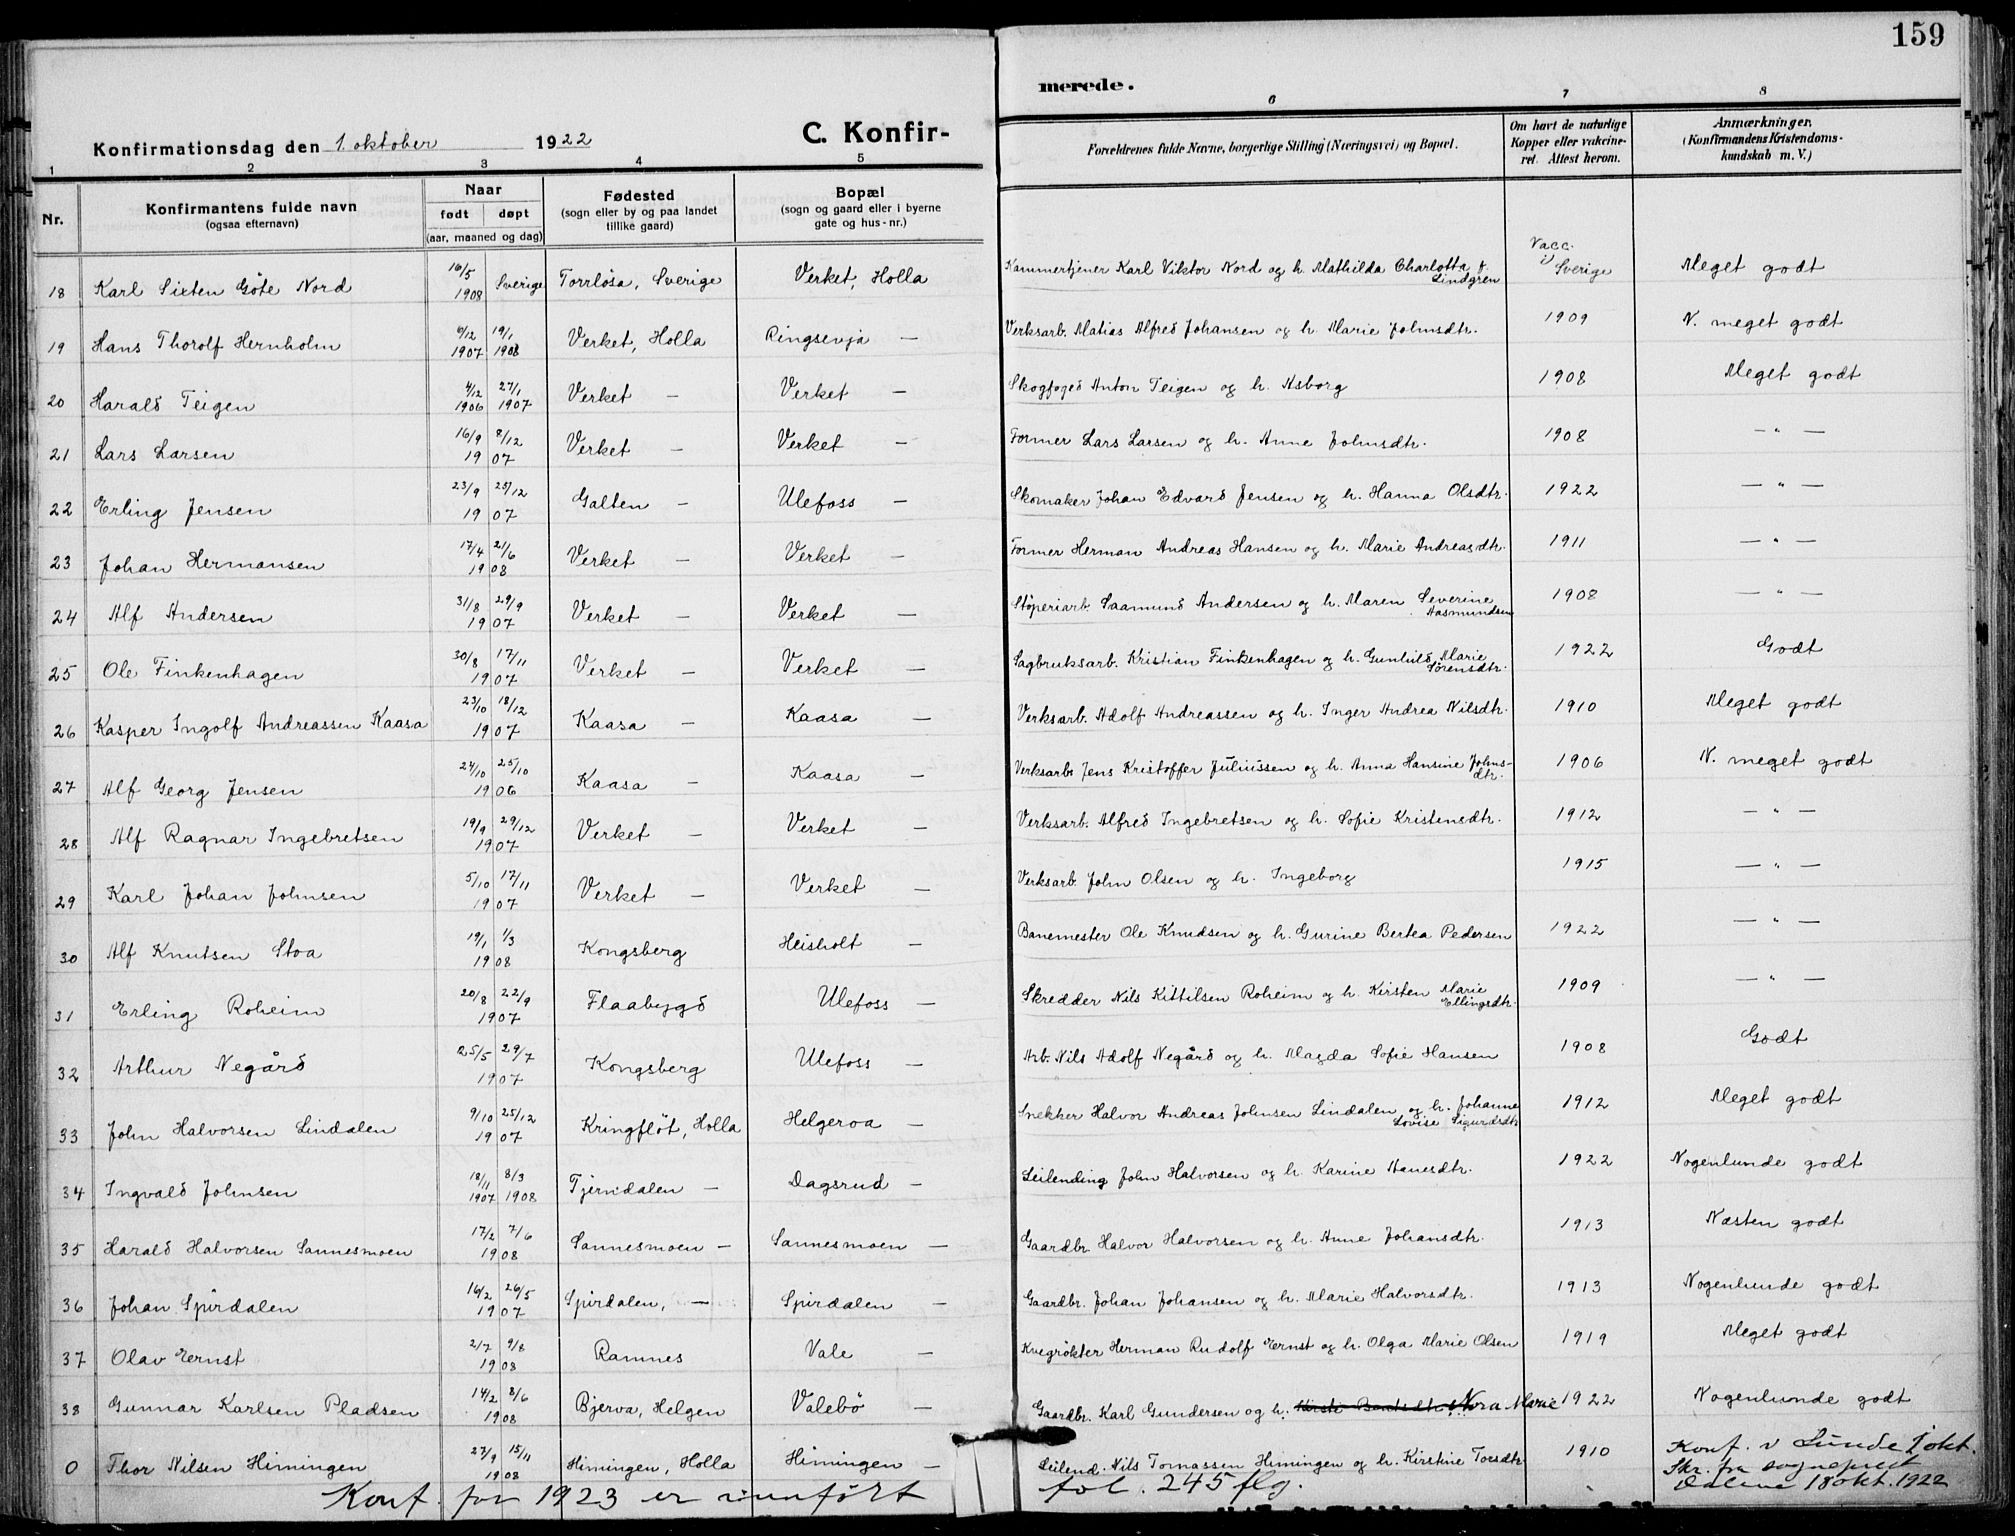 159
merede.
Konfirmationsdag den 1. oktober 1922
C. Konfir-
1 2 3 4 5 6 7 8
Nr.
Konfirmantens fulde navn
(ogsaa efternavn)
Naar
født døpt
(aar, maaned og dag)
Fødested
(sogn eller by og paa landet
tillike gaard)
Bopæl
(sogn og gaard eller i byerne
gate og hus-nr.)
Forældrenes fulde Navne, borgerlige Stilling (Næringsvei) og Bopæl.
Om havt de naturlige
Kopper eller vakcine-
ret. Attest herom.
Anmærkninger.
(Konfirmandens Kristendoms-
kundskab m. V.)
18 Karl Sixten Göte Nord 16/5 1908 Sverige Torrlösa, Sverige Verket, Holla Kammertjener Karl Viktor Nord og h. Mathilda Charlotta f. Lindgren Vacc. i Sverige Meget godt
19 Hans Thorolf Hernholm 6/12 1907 19/1 1908 Verket, Holla Ringsevja — Verksarb. Matias Alfred Johansen og h. Marie Johnsdtr. 1909 N. meget godt
20 Harald Teigen 4/12 1906 27/1 1907 Verket — Verket — Skogfoged Anton Teigen og h. Asborg 1908 Meget godt
21 Lars Larsen 16/9 8/12 1907 Verket — Verket — Former Lars Larsen og h. Anne Johnsdtr. 1908 — " —
22 Erling Jensen 23/9 25/12 1907 Galten — Ulefoss — Skomaker Johan Edvard Jensen og h. Hanna Olsdtr. 1922 — " —
23 Johan Hermansen 17/4 21/6 1908 Verket — Verket — Former Herman Andreas Hansen og h. Marie Andreasdtr. 1911 — " —
24 Alf Andersen 31/8 29/9 1907 Verket — Verket — Støperiarb. Saamund Andersen og h. Maren Severine Aasmundsen 1908 — " —
25 Ole Finkenhagen 30/8 17/11 1907 Verket — Verket — Sagbruksarb. Kristian Finkenhagen og h. Gunhild Marie Sørensdtr. 1922 Godt
26 Kasper Ingolf Andreassen Kaasa 23/10 18/12 1907 Kaasa — Kaasa — Verksarb. Adolf Andreassen og h. Inger Andrea Nilsdtr. 1910 Meget godt
27 Alf Georg Jensen 24/10 25/10 1906 Kaasa — Kaasa — Verksarb. Jens Kristoffer Juliussen og h. Anna Hansine Johnsdtr. 1906 N. meget godt
28 Alf Ragnar Ingebretsen 19/9 29/12 1907 Verket — Verket — Verksarb. Alfred Ingebretsen og h. Sofie Kristensdtr. 1912 — " —
29 Karl Johan Johnsen 5/10 17/11 1907 Verket — Verket — Verksarb. John Olsen og h. Ingeborg 1915 — " —
30 Alf Knutsen Stoa 19/1 1/3 1908 Kongsberg Heisholt — Banemester Ole Knudsen og h. Gurine Bertea Pedersen 1922 — " —
31 Erling Roheim 20/8 22/9 1907 Flaabygd Ulefoss — Skredder Nils Kittilsen Roheim og h. Kirsten Marie Ellingsdtr. 1909 — " —
32 Arthur Negård 25/5 29/7 1907 Kongsberg Ulefoss — Arb. Nils Adolf Negård og h. Magda Sofie Hansen 1908 Godt
33 John Halvorsen Lindalen 9/10 25/12 1907 Kringfløt, Holla Helgeroa — Snekker Halvor Andreas Johnsen Lindalen og h. Johanne Lovise Sigurdsdtr 1912 Meget godt
34 Ingvald Johnsen 18/11 1907 8/3 1908 Tjerndalen — Dagsrud — Leilending John Halvorsen og h. Karine Hansdtr. 1922 Nogenlunde godt
35 Harald Halvorsen Sannesmoen 17/2 7/6 1908 Sannesmoen — Sannesmoen — Gaardbr. Halvor Halvorsen og h. Anne Johansdtr. 1913 Næsten godt
36 Johan Spirdalen 16/2 26/5 1907 Spirdalen, — Spirdalen — Gaardbr. Johan Johansen og h. Marie Halvorsdtr. 1913 Nogenlunde godt
37 Olav Ernst 2/7 9/8 1908 Ramnes Vale — Kvegrøkter Herman Rudolf Ernst og h. Olga Marie Olsen 1919 Meget godt
38 Gunnar Karlsen Pladsen 14/2 8/6 1908 Bjerva, Helgen Valebø — Gaardbr. Karl Gundersen og h. Nora Marie 1922 Nogenlunde godt
0 Thor Nilsen Himingen 27/9 15/11 1908 Himingen, Holla Himingen — Leilend. Nils Tomassen Himingen og h. Kirstine Torsdtr 1910 Konf. v Lunde 1 okt.
Skr. fra sogneprest
18 okt. 1922
Konf. for 1923 er innført fol. 245 flg.